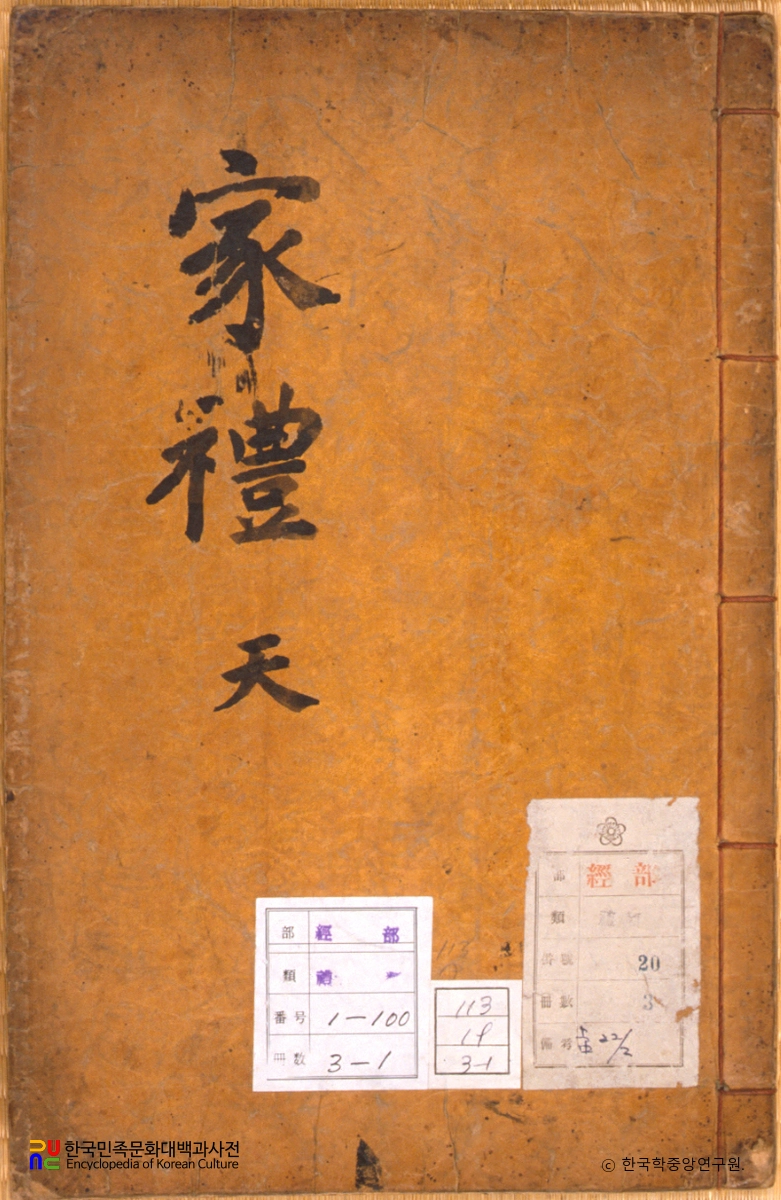 家禮
天
部 經部
類 禮
番号 1-100
冊数 3-1
113
19
3-1
部 經部
類
番號 20
冊數 3
備考 22/2
한국민족문화대백과사전
Encyclopedia of Korean Culture
© 한국학중앙연구원.